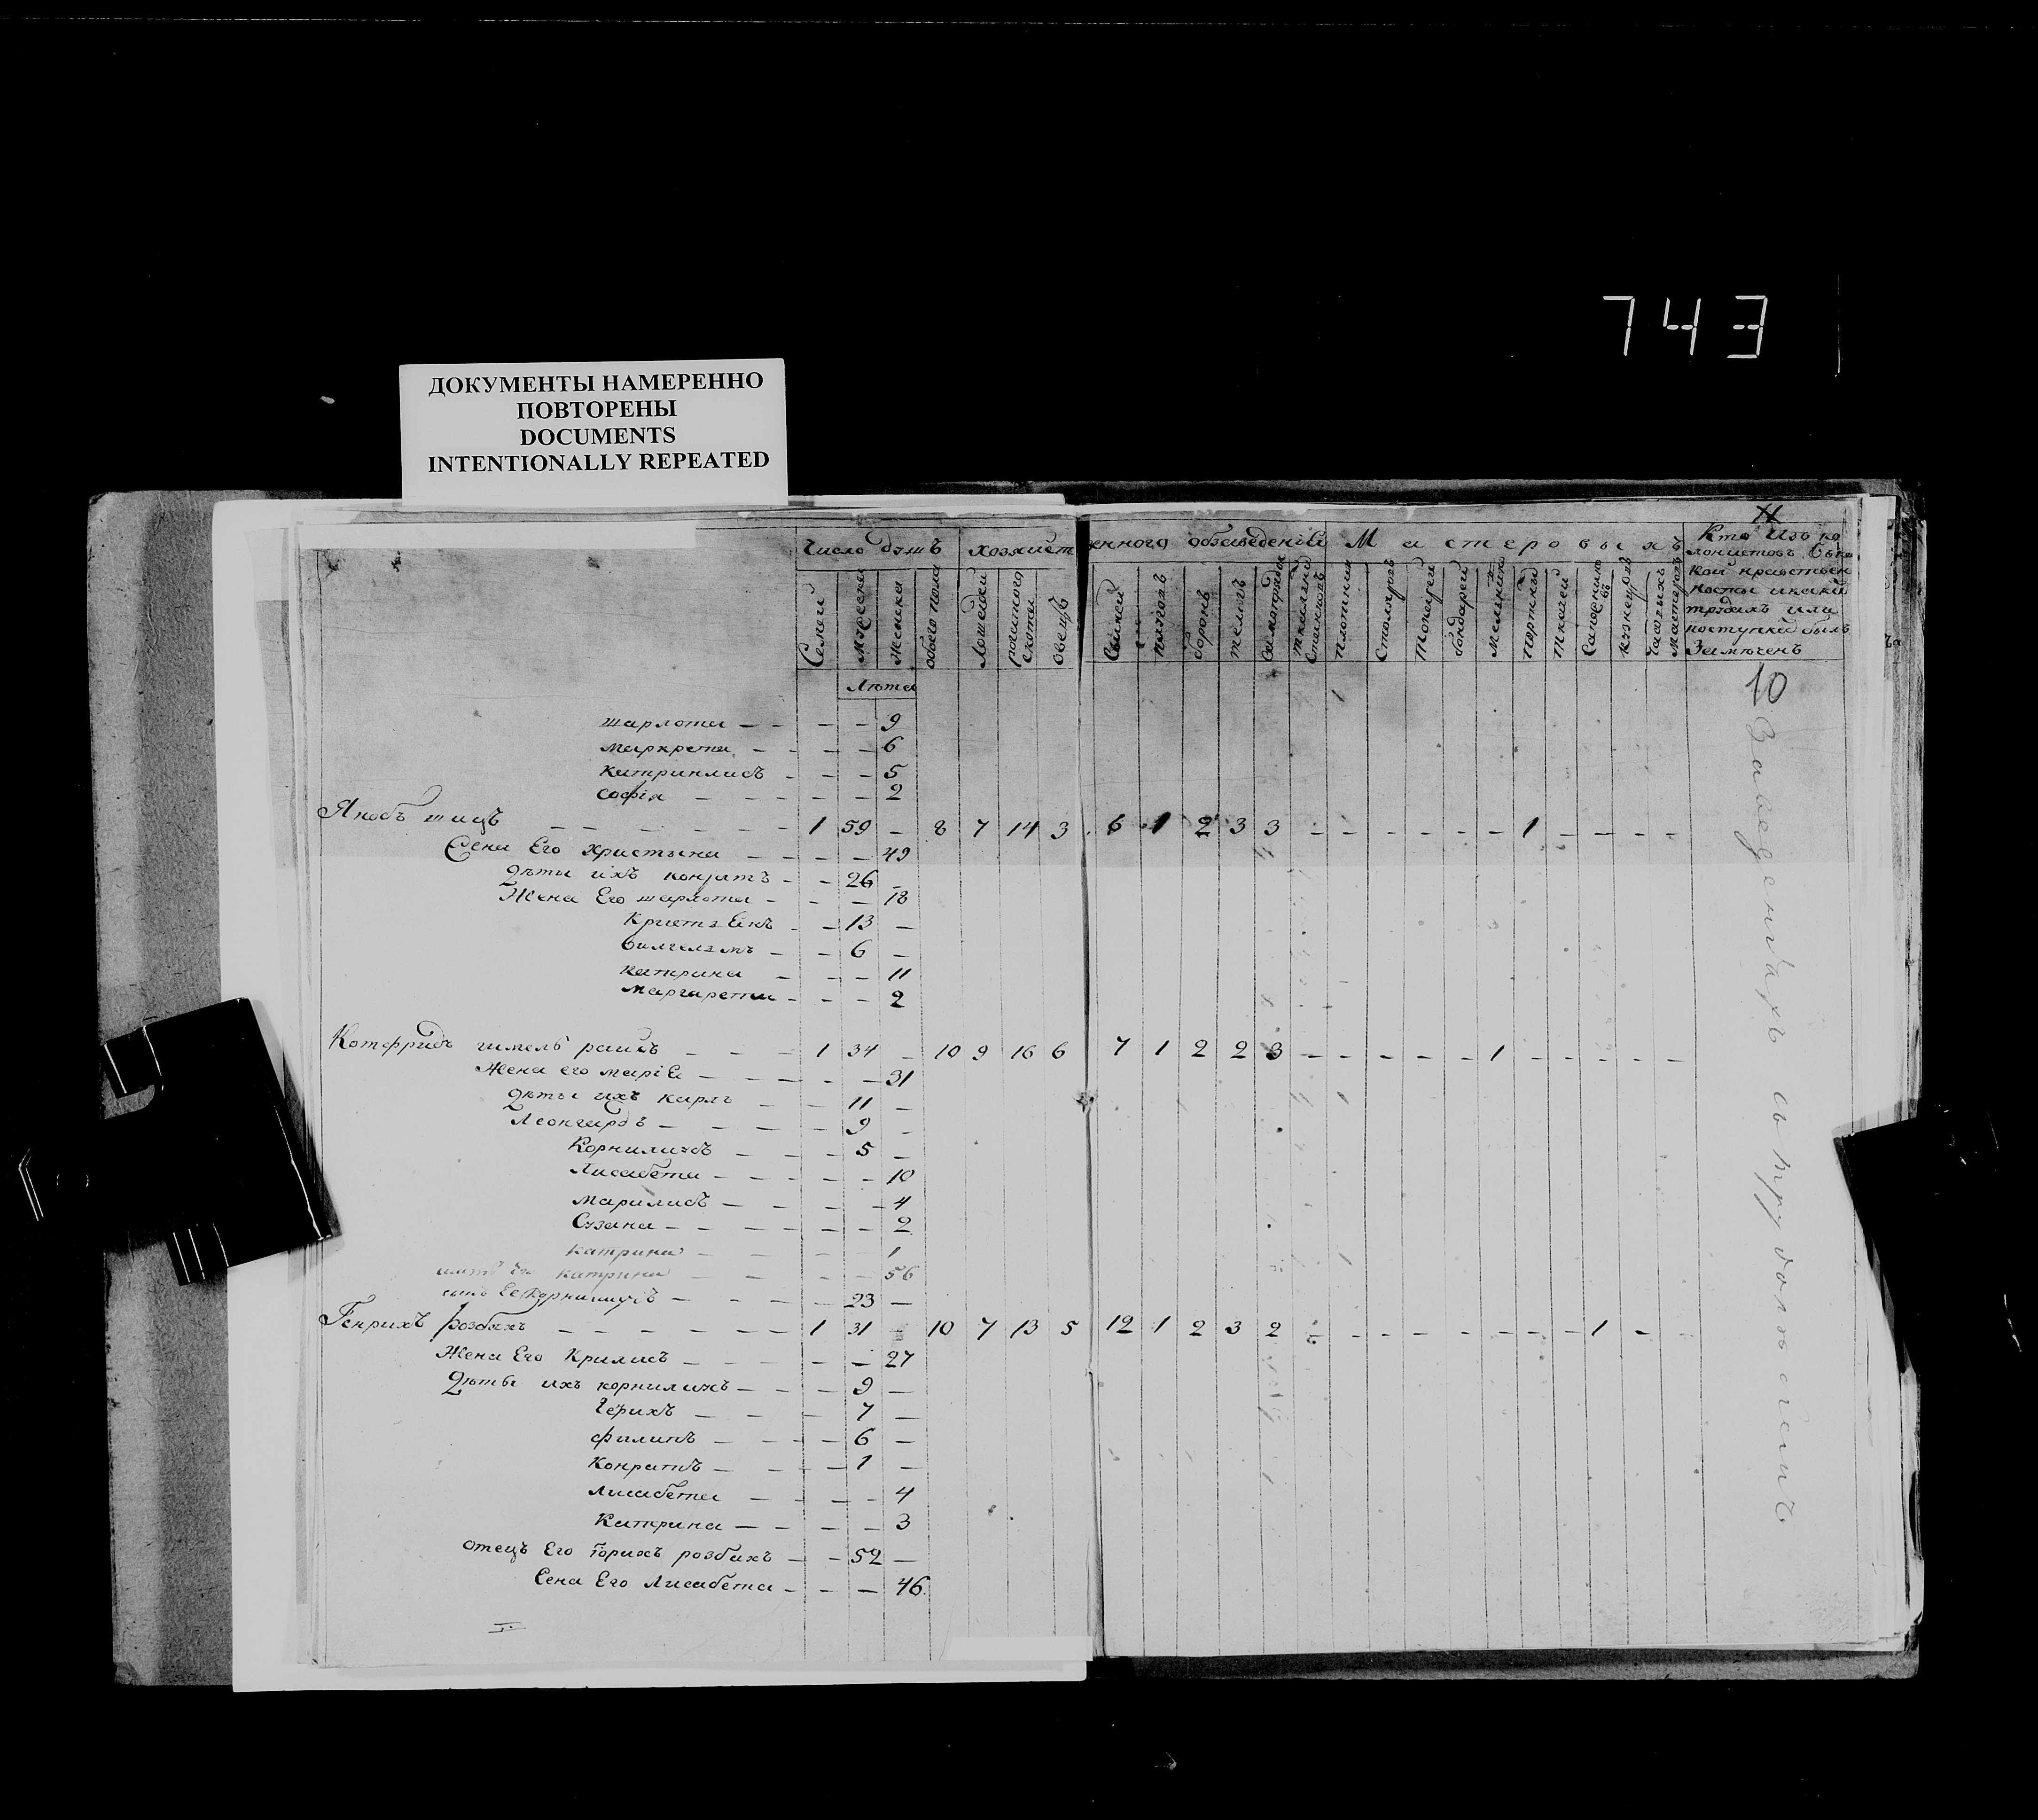 743
ДОКУМЕНТЫ НАМЕРЕННО
ПОВТОРЕНЫ
DOCUMENTS
INTENTIONALLY REPEATED
Число душъ хозяист венного обзаведенiй Мастеровыхъ
Кто изъ ко
лонистовъ въ ка
кои нравствен
ности и каки
трудахъ или
поступкѣ былъ
Замѣченъ
Семеи
Мужеска
Женска
обоего пола
Лошедеи
рогатого скота
Овецъ
Свинеи
плуговъ
боронъ
телегъ
Самопряды
Плотники
Столяровъ
Токареи
бондареи
Мельник
портны
Ткачеи
Кузнецовъ
Часовыхъ Мастеровъ
Лѣта
10
шарлота — — — — 9
маркрета — — — 6
катринлисъ — — — 5
софiя — — — — 2
Якобъ шицъ — — — 1 59 — 8 7 14 3 6 1 2 3 3 — — — — — — 1 — — — —
Жена Его Христына — — — 49
дѣты ихъ конратъ — — 26 —
Жена Его шарлота — — — 18
13 —
вилгелэмъ — — 6 —
катрина — — — 11
маргарета — — — 2
Котфридъ 1 34 — 10 9 16 6 7 1 2 2 3 — — — — — 1 — — — — —
Жена его марiа — — — 31
дѣты ихъ карлъ — — 11 —
Леонгардъ — — — 9 —
Корнилиусъ — — — 5 —
Лисабета — — — 10
марилисъ — — — 4
Сузана — — — 2
катрина — — — 1
мать Его катрина — — — 56
сынъ Ее Корнилиусъ — — — 23 —
Генрихъ розбахъ — — — 1 31 — 10 7 13 5 12 1 2 3 2 — — — — — — — — 1 — —
Жена Его Крилисъ — — — 27
Дѣты ихъ корнилиусъ — — — 9 —
Герихъ — — — 7 —
филипъ — — — 6 —
Конратъ — — — 1 —
лисабета — — — 4
Катрина — — — 3
отецъ Его Горихъ розбахъ — — 52 —
Жена Его Лисабета — — — 46